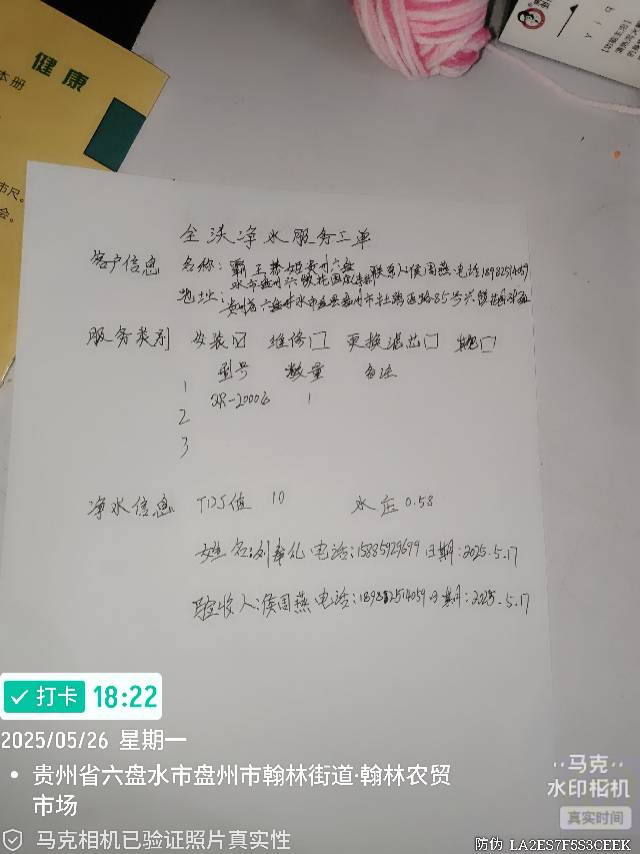 健康
本册
市尺。
会。
全淡净水服务工单
客户信息 名称：霸王茶姬贵州六盘水市盘州六 联系人侯国燕 电话18982514059
地址：贵州省六盘水市盘县盘州市 路85号
服务类别 安装☑ 维修□ 更换滤芯□ □
型号 数量 备注
1
2R-2000G 1
2
3
净水信息 TDS值 10 水压 0.58
姓名: 电话:15885929699 日期:2025.5.17
验收人:侯国燕 电话:18982514059 日期:2025.5.17
打卡 18:22
2025/05/26 星期一
贵州省六盘水市盘州市翰林街道·翰林农贸
市场
马克相机已验证照片真实性
马克
水印相机
真实时间
防伪 LA2ES7F5S3CEEK